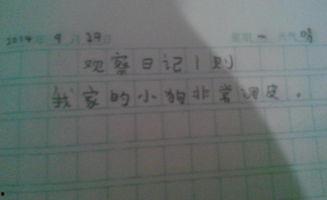 2014年9月29日 星期一 天气晴
观察日记1则
我家的小狗非常调皮。